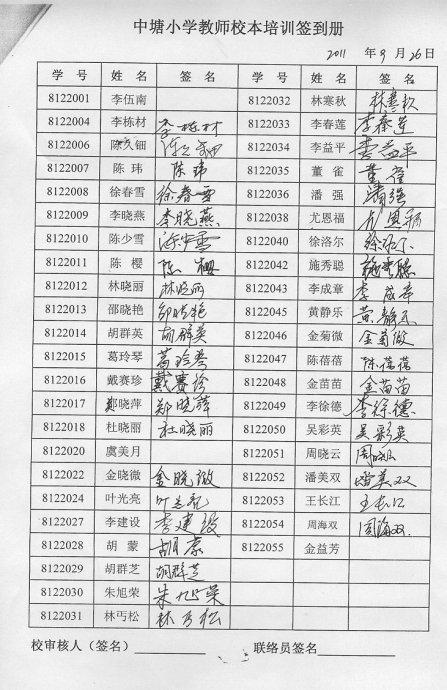 中塘小学教师校本培训签到册
2011 年 9 月 26 日
学 号 姓 名 签 名 学 号 姓 名 签 名
8122001 李伍南 8122032 林寒秋 林寒秋
8122004 李栋材 李栋材 8122033 李春莲 李春莲
8122006 陈久钿 陈久钿 8122034 李益平 李益平
8122007 陈 玮 陈玮 8122035 董 雀 董雀
8122008 徐春雪 徐春雪 8122036 潘 强 潘强
8122009 李晓燕 李晓燕 8122038 尤恩福 尤恩福
8122010 陈少雪 陈少雪 8122040 徐洛尔 徐洛尔
8122011 陈 樱 陈樱 8122042 施秀聪 施秀聪
8122012 林晓丽 林晓丽 8122043 李成章 李成章
8122013 邵晓艳 邵晓艳 8122045 黄静乐 黄静乐
8122014 胡群英 胡群英 8122046 金菊微 金菊微
8122015 葛玲琴 葛玲琴 8122047 陈蓓蓓 陈蓓蓓
8122016 戴赛珍 戴赛珍 8122048 金苗苗 金苗苗
8122017 郑晓萍 郑晓萍 8122049 李徐德 李徐德
8122018 杜晓丽 杜晓丽 8122050 吴彩英 吴彩英
8122020 虞美月 8122051 周晓云 周晓云
8122022 金晓微 金晓微 8122052 潘美双 潘美双
8122024 叶光亮 叶光亮 8122053 王长江 王长江
8122027 李建设 李建设 8122054 周海双 周海双
8122028 胡 蒙 胡蒙 8122055 金益芳
8122029 胡群芝 胡群芝
8122030 朱旭荣 朱旭荣
8122031 林丐松 林丐松
校审核人（签名） 联络员签名